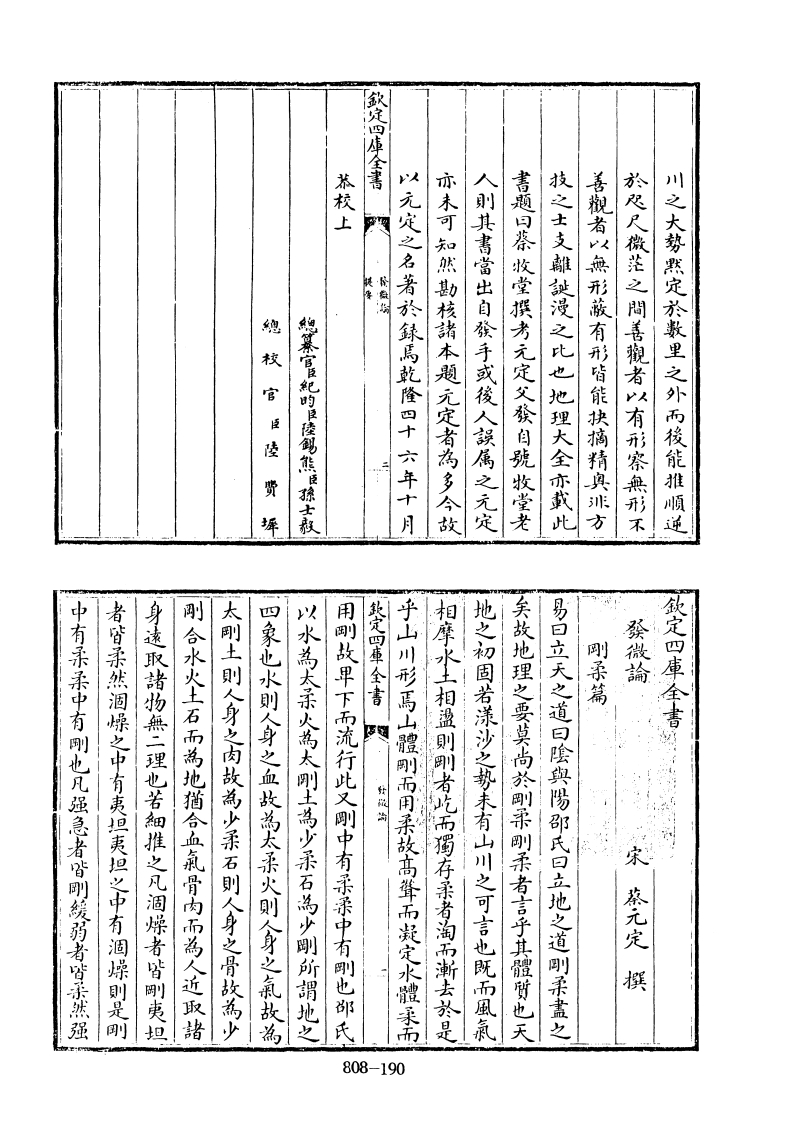 川之大勢黙定於數里之外而後能推順逆
於咫尺微茫之間善觀者以有形察無形不
善觀者以無形蔽有形皆能抉摘精奧非方
技之士支離誕漫之比也地理大全亦載此
書題曰蔡牧堂撰考元定父發自號牧堂老
人則其書當出自發手或後人誤属之元定
亦未可知然勘核諸本題元定者為多今故
欽定四庫全書
發微論
提要
二
以元定之名著於録焉乾隆四十六年十月
恭校上
總纂官臣紀昀臣陸錫熊臣孫士毅
總校官臣陸費墀
欽定四庫全書
發微論
宋 蔡元定 撰
剛柔篇
易曰立天之道曰陰與陽邵氏曰立地之道剛柔盡之
矣故地理之要莫尚於剛柔剛柔者言乎其體質也天
地之初固若漾沙之勢未有山川之可言也既而風氣
相摩水土相盪則剛者屹而獨存柔者淘而漸去於是
乎山川形焉山體剛而用柔故髙聳而凝定水體柔而
欽定四庫全書
發微論
一
用剛故卑下而流行此又剛中有柔柔中有剛也邵氏
以水為太柔火為太剛土為少柔石為少剛所謂地之
四象也水則人身之血故為太柔火則人身之氣故為
太剛土則人身之肉故為少柔石則人身之骨故為少
剛合水火土石而為地猶合血氣骨肉而為人近取諸
身遠取諸物無二理也若細推之凡涸燥者皆剛夷坦
者皆柔然涸燥之中有夷坦夷坦之中有涸燥則是剛
中有柔柔中有剛也凡强急者皆剛緩弱者皆柔然强
808-190